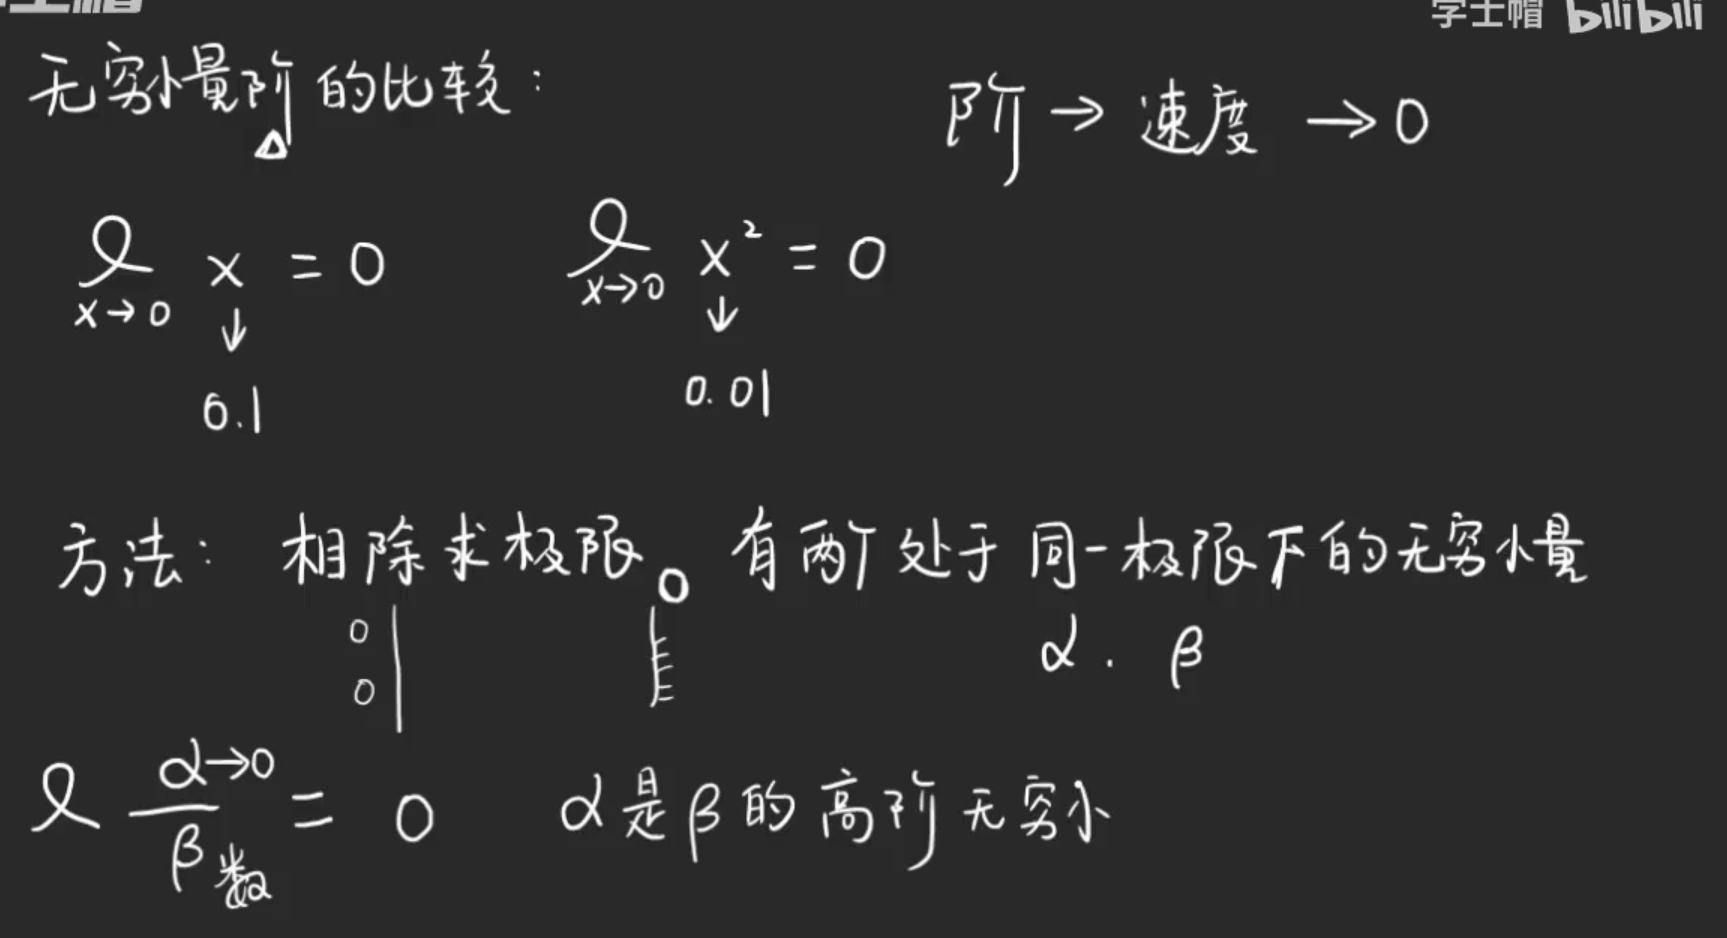 学士帽 bilibili
无穷小量阶的比较：
阶 → 速度 → 0
l x = 0
x→0
↓
0.1
l x² = 0
x→0
↓
0.01
方法： 相除求极限。 有两个处于同一极限下的无穷小量
0
0
α . β
l α→0 / β 数 = 0 α是β的高阶无穷小